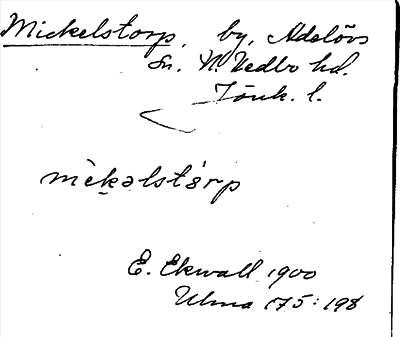 Mickelstorp, by, Adelövs
sn. N. Vedbo hd.
Jönk. l.
mèk̬əlstár̀p
E. Ekwall 1900
Ulma 175:198